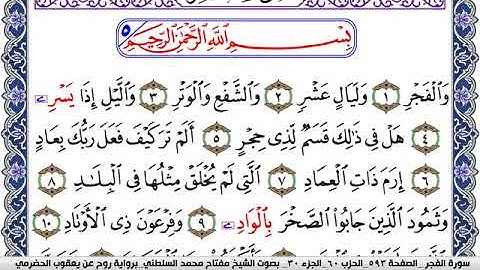 بِسْمِ اللَّهِ الرَّحْمَٰنِ الرَّحِيمِ
وَالْفَجْرِ ١ وَلَيَالٍ عَشْرٍ ٢ وَالشَّفْعِ وَالْوَتْرِ ٣ وَالَّيْلِ إِذَا يَسْرِۦ
٤ هَلْ فِي ذَٰلِكَ قَسَمٌ لِّذِي حِجْرٍ ٥ أَلَمْ تَرَ كَيْفَ فَعَلَ رَبُّكَ بِعَادٍ
٦ إِرَمَ ذَاتِ الْعِمَادِ ٧ الَّتِي لَمْ يُخْلَقْ مِثْلُهَا فِي الْبِلَٰدِ ٨
وَثَمُودَ الَّذِينَ جَابُوا الصَّخْرَ بِالْوَادِۦ ٩ وَفِرْعَوْنَ ذِي الْأَوْتَادِ ١٠
سورة الفجر_ الصفحة ٥٩٣_ الحزب ٦٠_ الجزء ٣٠_ بصوت الشيخ مفتاح محمد السلطني_ برواية روح عن يعقوب الحضرمي